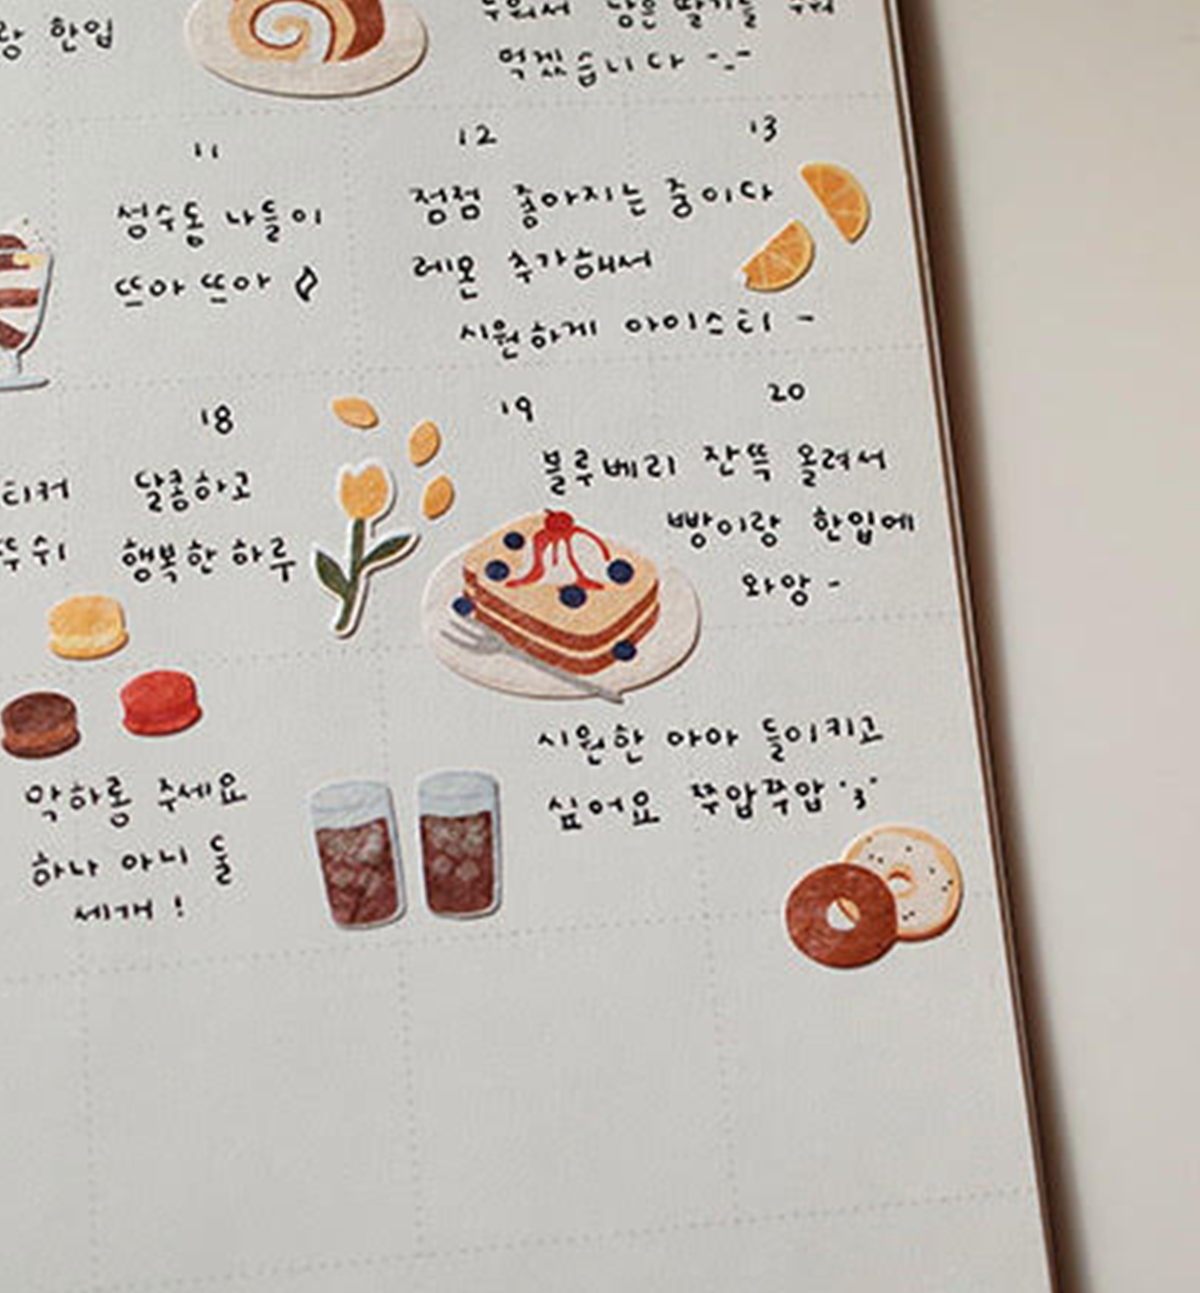 랑 한입
먹겠습니다 -_-
11
성수동 나들이
뜨아 뜨아
12
13
점점 좋아지는 중이다
레몬 추가해서
시원하게 아이스티 -
18
달콤하고
행복한 하루
19
20
블루베리 잔뜩 올려서
빵이랑 한입에
와앙 -
막하롱 주세요
하나 아니 둘
세개 !
시원한 아아 들이키고
싶어요 쭈압쭈압 '3'